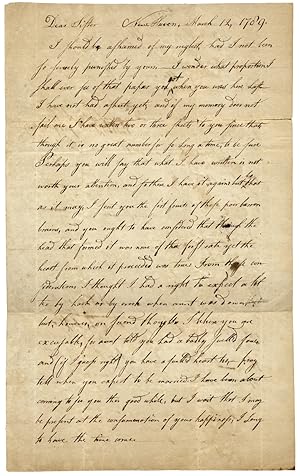 Dear Sister New Haven, March 12, 1789.
I should be ashamed of my neglect, had I not been
so severely punished by yours I wonder what proportion I
shall ever see of that paper you when you was here last
I have not had a sheet yet; and if my memory does not
fail me I have written two or three sheets to you since that,
though it is no great number for so long a time, to be sure
Perhaps you will say that what I have written is not
worth your attention, and so then I have it again but that
as it may, I sent you the first fruits of these poor barren
brains, and you ought to have considered that though the
head that formed it was none of the first rate yet the
heart from which it proceeded was true. From these con
siderations I thought I had a right to expect a let
ter by hook or by crook when aunt was down
but, however, on second thoughts I believe you are
excusable, for aunt told you had a sadly face
and if I guess right you have a heart too, pray
tell when you expect to be married. I have been about
coming to see you this good while, but I wait that I may
be present at the consummation of your happiness; I long
to have the time come.